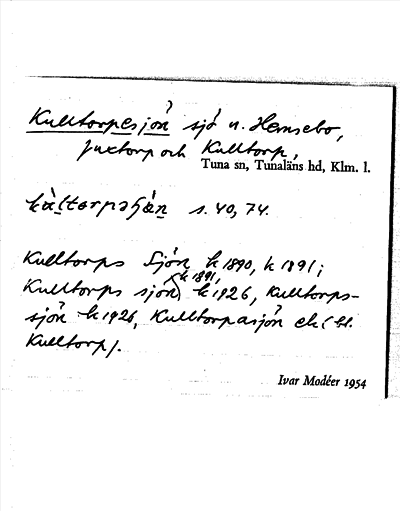 Kulltorpesjön sjö n. Hemsebo,
Juxtorp och Kulltorp,
Tuna sn, Tunaläns hd, Klm. l.
s. 40, 74.
Kulltorps Sjön k 1890, k 1891;
k 1891,
Kulltorps sjön k 1926, Kulltorps-
sjön k 1926, Kulltorpasjön ek (bl.
Kulltorp).
Ivar Modéer 1954